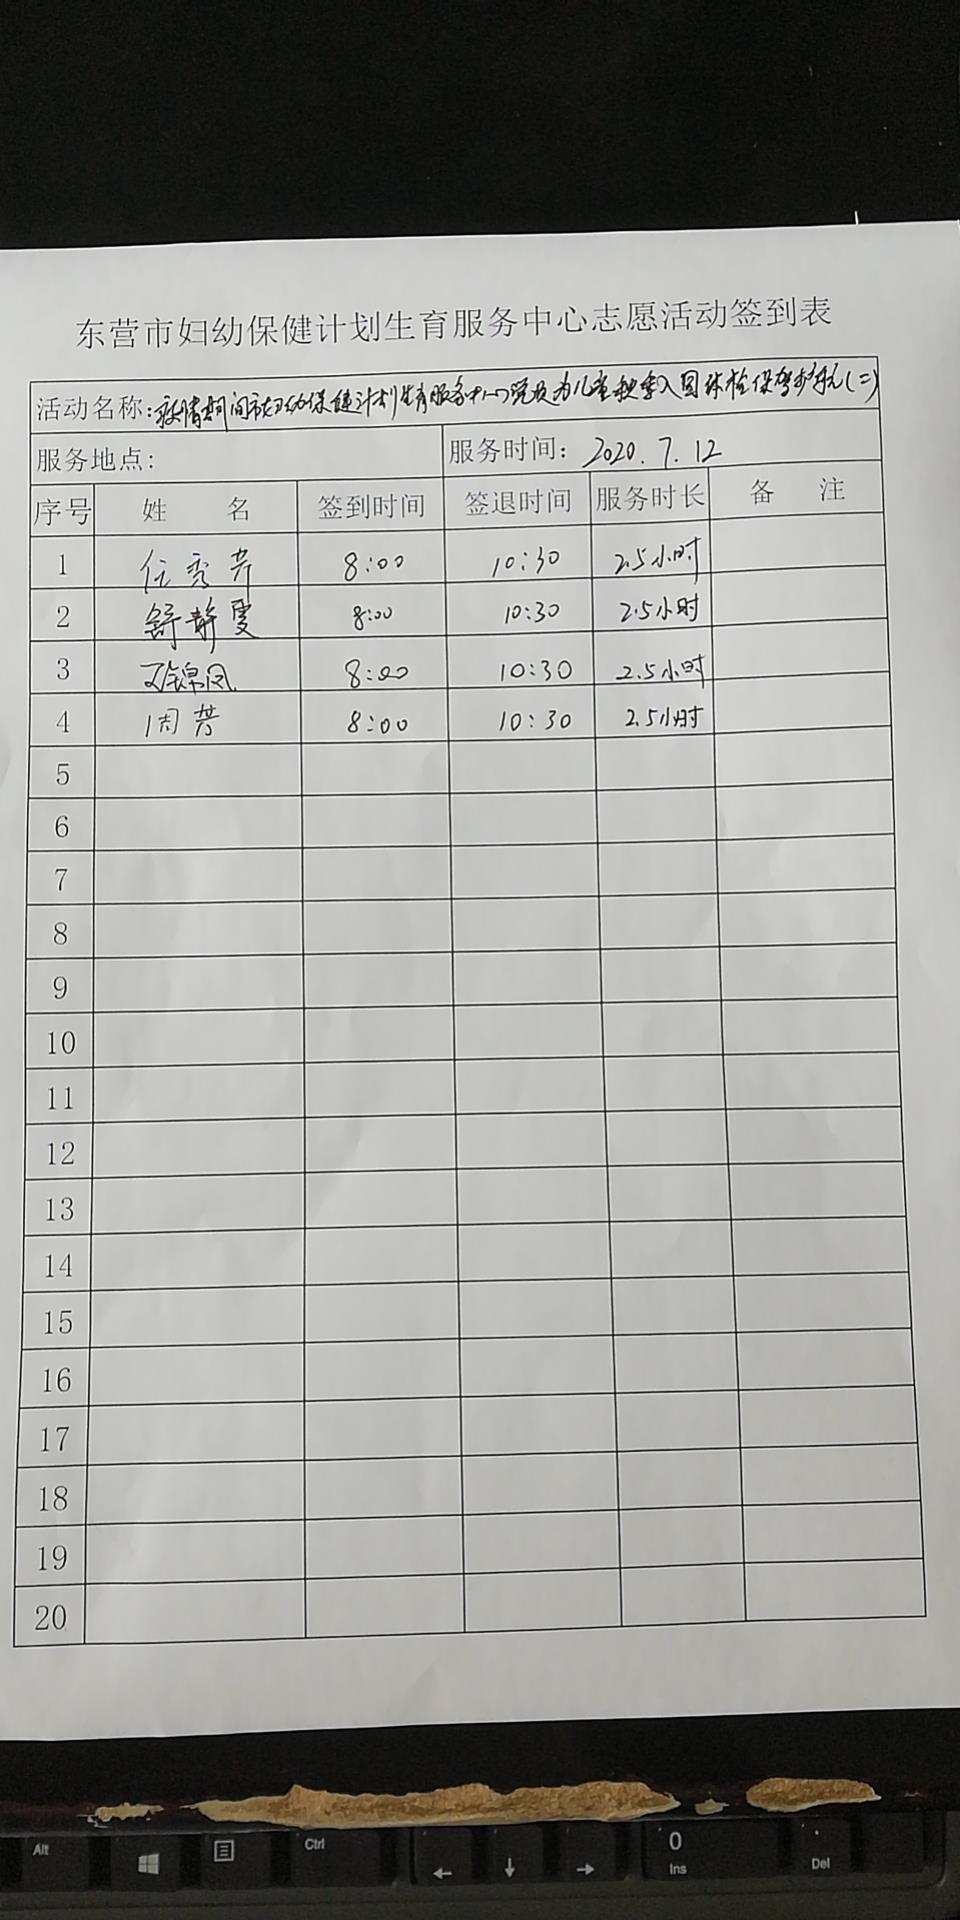 东营市妇幼保健计划生育服务中心志愿活动签到表
活动名称:疫情期间市妇幼保健计划生育服务中心党员为儿童秋季入园体检保驾护航(二)
服务地点: 服务时间: 2020.7.12
序号 姓 名 签到时间 签退时间 服务时长 备 注
1 任秀芳 8:00 10:30 2.5小时
2 舒静雯 8:00 10:30 2.5小时
3 锦凤 8:00 10:30 2.5小时
4 周芳 8:00 10:30 2.5小时
5
6
7
8
9
10
11
12
13
14
15
16
17
18
19
20
Alt Ctrl ← ↓ → 0 Ins . Del